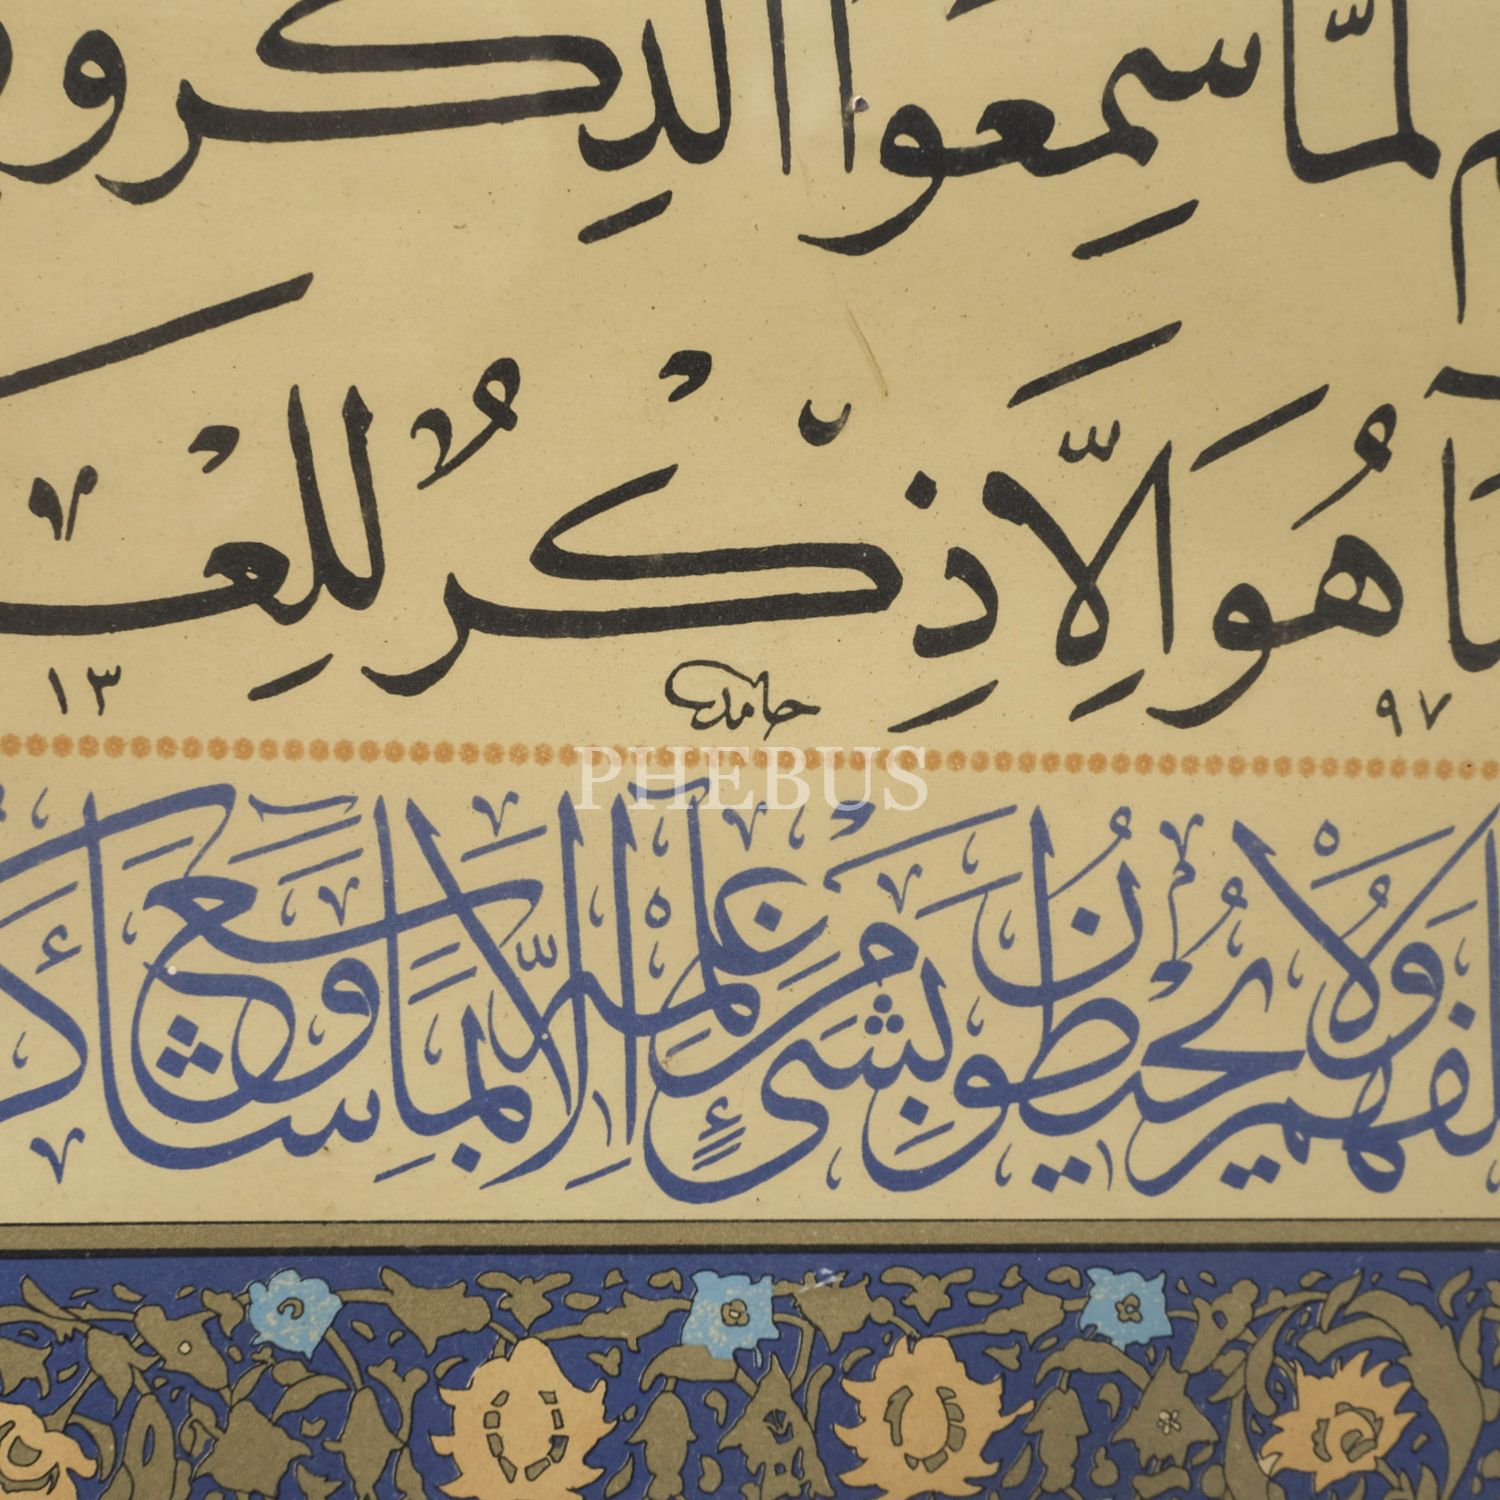 لَمَّا سَمِعُوا الذِّكْرَ وَ
هُوَ إِلَّا ذِكْرٌ لِلْعَـ
٩٧ حامد ١٣
PHEBUS
خَلْفَهُمْ وَلَا يُحِيطُونَ بِشَيْءٍ مِنْ عِلْمِهِ إِلَّا بِمَا شَاءَ وَسِعَ كُرْ